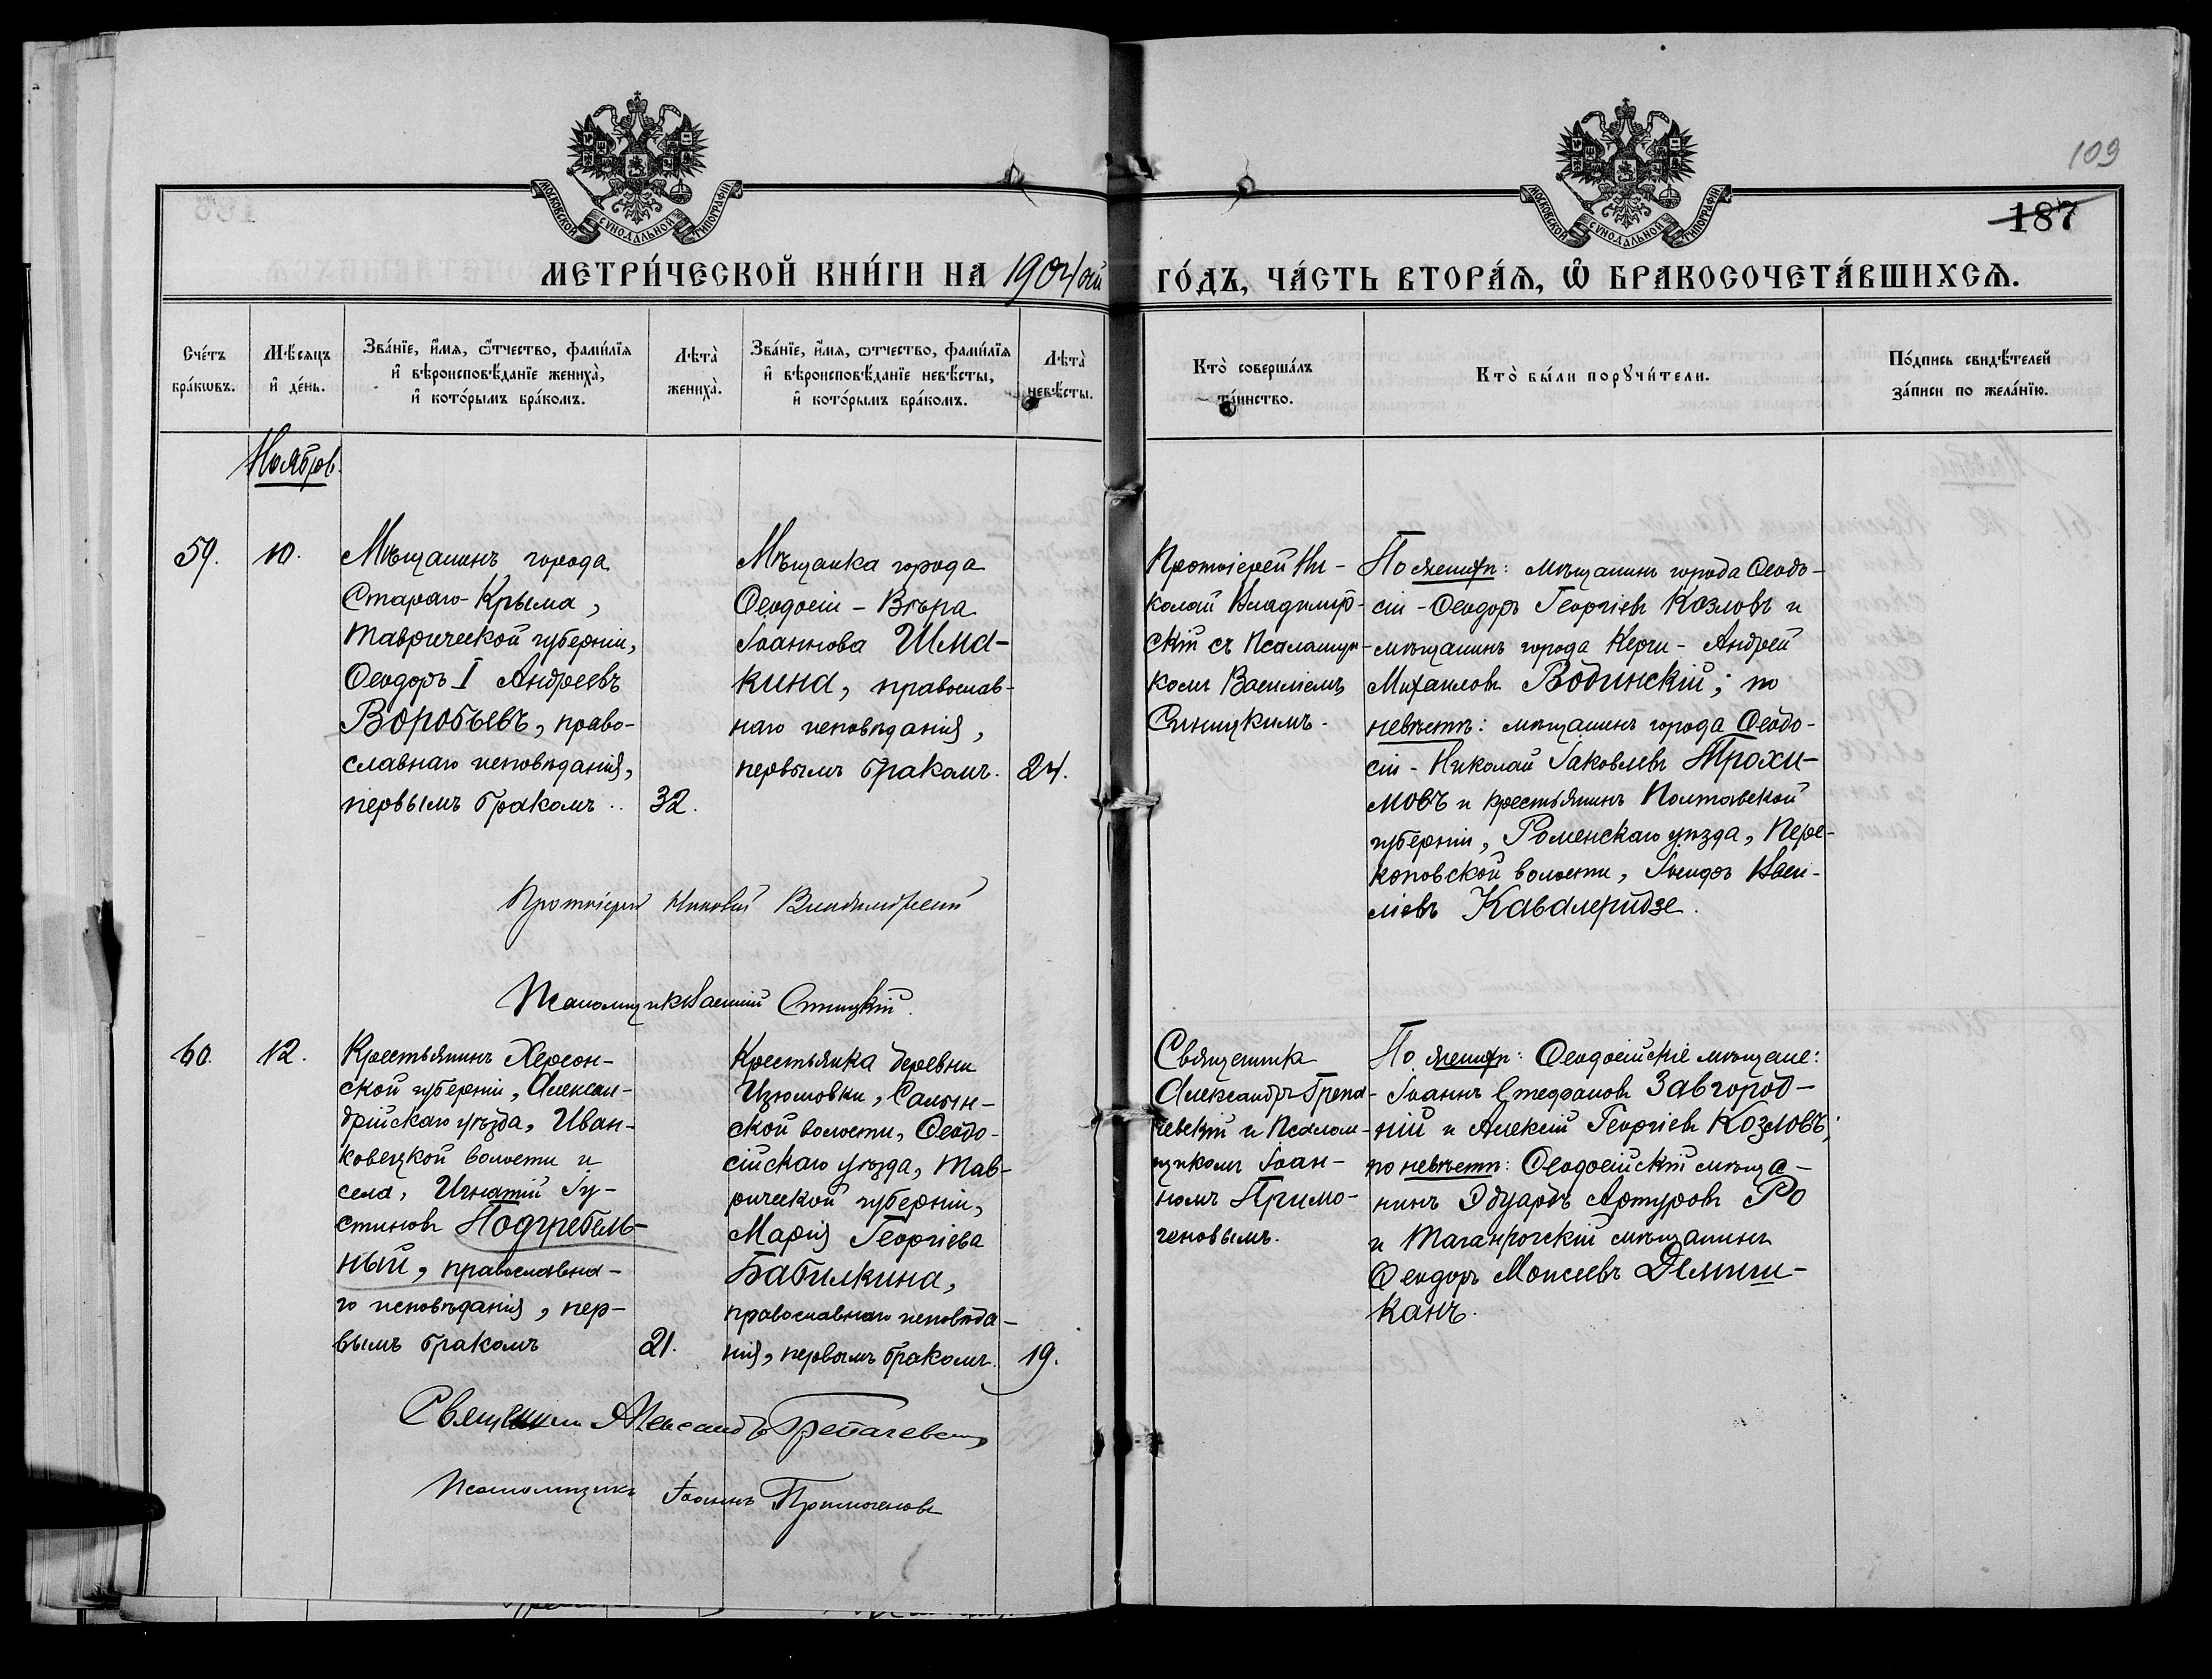 109
187
МОСКОВСКОЙ СѴНОДАЛЬНОЙ ТИПОГРАФІИ
МОСКОВСКОЙ СѴНОДАЛЬНОЙ ТИПОГРАФІИ
МЕТРИ́ЧЕСКОЙ КНИ́ГИ НА 1904/ый ГО́ДЪ, ЧА́СТЬ ВТОРА́Ѧ, Ѽ БРАКОСОЧЕТА́ВШИХСѦ.
Сче́тъ
бра́кѡвъ.
Мѣ́сяцъ
и҆ де́нь.
Зва́нїе, и҆́мя, ѻ҆́тчество, фами́лїя
и҆ вѣроисповѣ́данїе жениха̀,
и҆ кото́рымъ бра́комъ.
Лѣта̀
жениха̀.
Зва́нїе, и҆́мя, ѻ҆тчество, фами́лїя
и҆ вѣроисповѣ́данїе невѣ́сты,
и҆ кото́рымъ бра́комъ.
Лѣта̀
невѣ́сты.
Кто̀ соверша́лъ
та́инство.
Кто̀ бы́ли порꙋчи́тели.
По́дпись свидѣ́телей
за́писи по жела́нїю.
Ноябрь.
59.
10.
Мѣщанинъ города
Стараго-Крыма,
Таврической губерніи,
Ѳеодоръ I Андреевъ
Воробьевъ, право-
славнаго исповѣданія,
первымъ бракомъ..
32.
Мѣщанка города
Ѳеодосіи - Вѣра
Іоаннова Шма-
кина, православ-
наго исповѣданія,
первымъ бракомъ.
24.
Протоіерей Ни-
колай Владимір-
скій съ Псаломщи-
комъ Василіемъ
Синицкимъ.
По женихѣ: мѣщанинъ города Ѳеодо-
сіи - Ѳеодоръ Георгіевъ Козловъ и
мѣщанинъ города Керчи - Андрей
Михаиловъ Водинскій; по
невѣстѣ: мѣщанинъ города Ѳеодо-
сіи - Николай Іаковлевъ Трохи-
мовъ и крестьянинъ Полтавской
губерніи, Роменскаго уѣзда, Пере-
коповской волости, Іосифъ Васи-
ліевъ Кавалеридзе.
Протоіерей Николай Владимірскій
Псаломщикъ Василій Синицкій.
60.
12.
Крестьянинъ Херсон-
ской губерніи, Алексан-
дрійскаго уѣзда, Иван-
ковецкой волости и
села, Игнатій Іу-
стиновъ Подгребель-
ный, православна-
го исповѣданія, пер-
вымъ бракомъ
21.
Крестьянка деревни
Изюмовки, Салын-
ской волости, Ѳеодо-
сійскаго уѣзда, Тав-
рической губерніи,
Марія Георгіева
Бабилкина,
православнаго исповѣда-
нія, первымъ бракомъ.
19.
Священникъ
Александръ Грепа-
чевскій и Псалом-
щикомъ Іоан-
номъ Примо-
геновымъ.
По женихѣ: Ѳеодосійскіе мѣщане:
Іоаннъ Стефановъ Завгород-
ній и Алексій Георгіевъ Козловъ;
по невѣстѣ: Ѳеодосійскій мѣща-
нинъ Эдуардъ Артуровъ Ро
и Таганрогскій мѣщанинъ
Ѳеодоръ Моисеевъ Демши-
канъ.
Священникъ Александръ Грепачевскій
Псаломщикъ Іоаннъ Примогеновъ